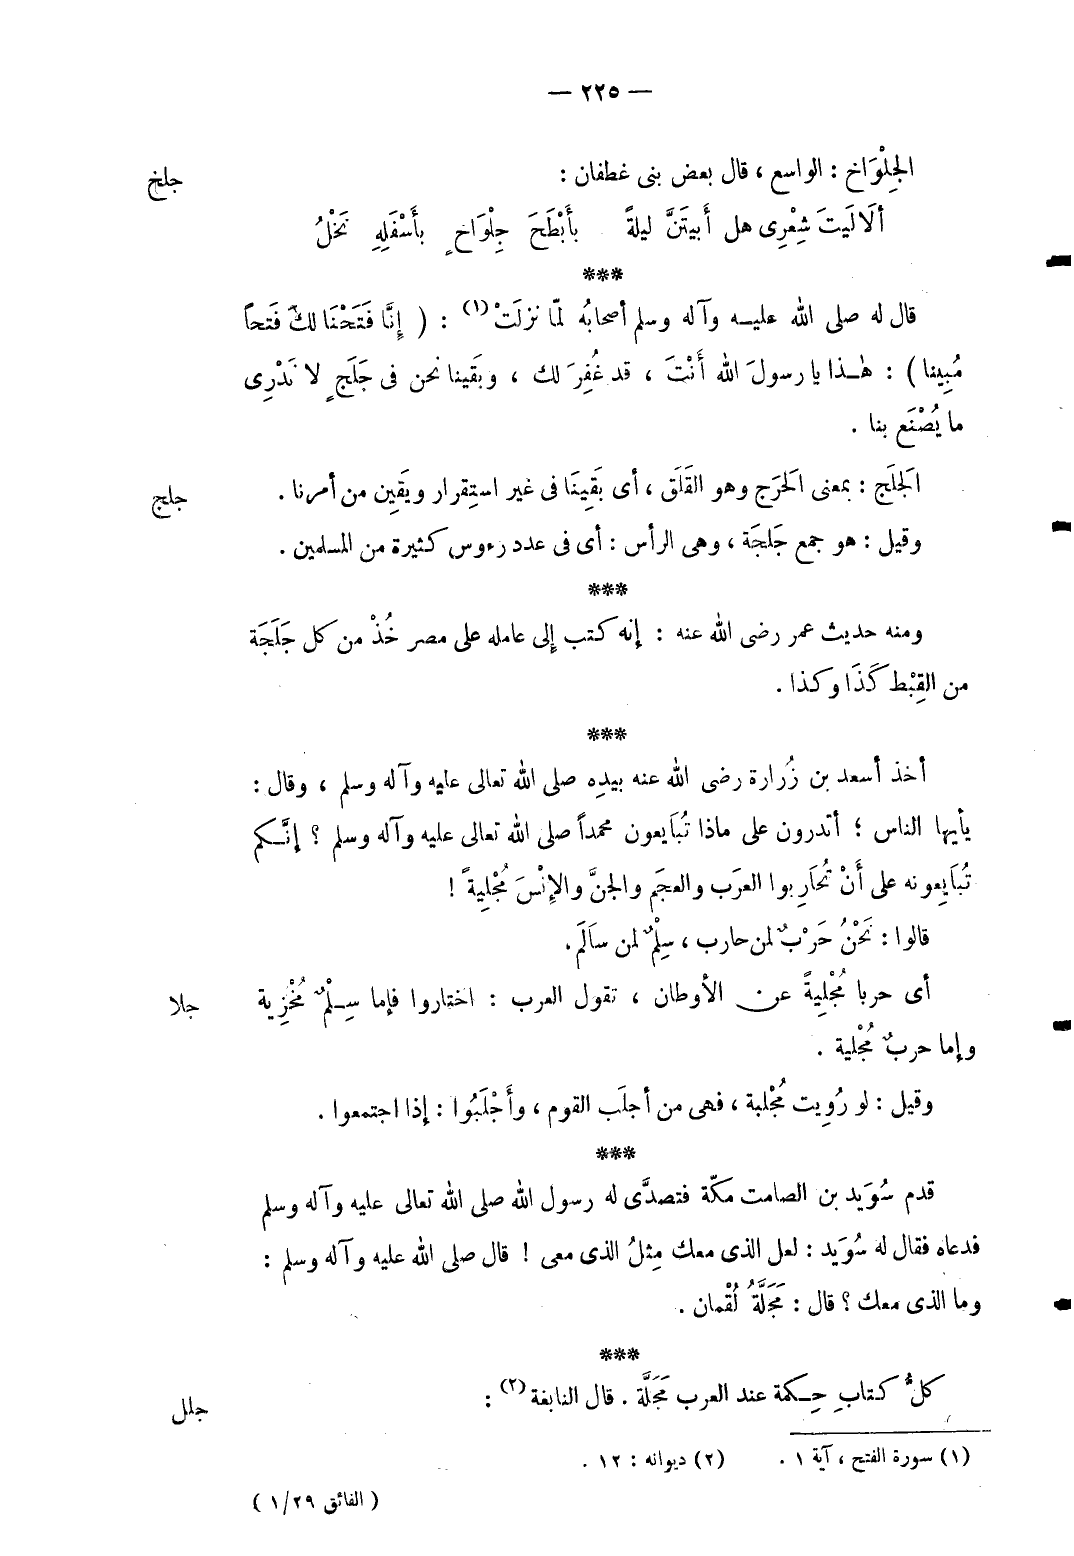 — ٢٢٥ —
الجِلْوَاخ : الواسع ، قال بعض بنى غطفان : جلخ
ألَا لَيتَ شِعْرِى هل أَبيتَنَّ ليلةً بأَبْطَحَ جِلْوَاخٍ بأَسْفَلِهِ نَخْلُ
***
قال له صلى الله عليــه وآله وسلم أصحابُه لمّا نزلَتْ (١) : ( إِنَّا فَتَحْنَا لكَ فَتحاً
مُبِينا ) : هٰـذا يا رسولَ الله أَنْتَ ، قد غُفِرَ لك ، وبَقينا نحن فى جَلَجٍ لا نَدْرِى
ما يُصْنَع بنا .
الجَلَج : بمعنى الحَرَج وهو القَلَق ، أى بَقِينَا فى غير استِقرار ويَقِين من أمرنا . جلج
وقيل : هو جمع جَلَجَة ، وهى الرأس : أى فى عدد رءوس كثيرة من المسلمين .
***
ومنه حديث عمر رضى الله عنه : إنه كتب إلى عامله على مصر خُذْ من كل جَلَجَة
من القِبْط كَذَا وكذا .
***
أخذ أسعد بن زُرارة رضى الله عنه بيدِه صلى الله تعالى عليه وآله وسلم ، وقال :
يأيها الناس ؛ أتدرون على ماذا تُبَايعون محمداً صلى الله تعالى عليه وآله وسلم ؟ إنَّـكم
تُبَايِعونه على أَنْ تُحَارِبوا العرَب والعجَم والجنَّ والإنْسَ مُجْلِيةً !
قالوا : نَحْنُ حَرْبٌ لمن حارب ، سِلْمٌ لمن سَالَم .
أى حربا مُجْلِيةً عن الأوطان ، تقول العرب : اختاروا فإما سِـلْمٌ مُخْزِية جلا
وإما حربٌ مُجْلية .
وقيل : لو رُوِيت مُجْلبة ، فهى من أجلَب القوم ، وأَجْلَبُوا : إذا اجتمعوا .
***
قدم سُوَيد بن الصامت مكّة فتصدَّى له رسول الله صلى الله تعالى عليه وآله وسلم
فدعاه فقال له سُوَيد : لعل الذى معك مِثلُ الذى معى ! قال صلى الله عليه وآله وسلم :
وما الذى معك ؟ قال : مَجَلَّةُ لُقْمان .
***
كلُّ كتابِ حِـكمة عند العرب مَجَلَّة . قال النابغة (٢) : جلل
(١) سورة الفتح ، آية ١ . (٢) ديوانه : ١٢ .
( الفائق ٢٩/١ )